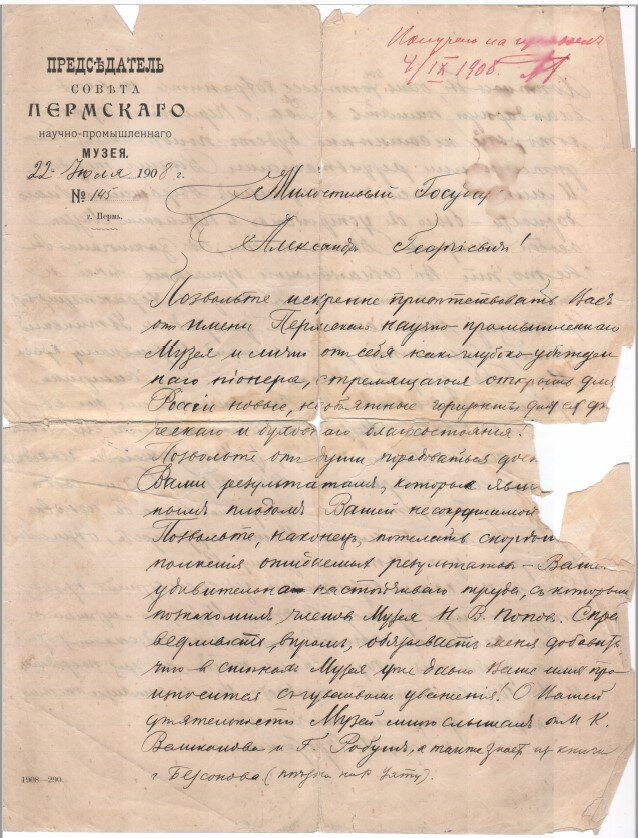 ПРЕДСѢДАТЕЛЬ
СОВѢТА
ПЕРМСКАГО
научно-промышленнаго
МУЗЕЯ.
22 Іюля 1908 г.
№ 145
г. Пермь.
Получено на
4/IX 1908.
Милостивый Госуд
Александръ Георгіевичъ!
Позвольте искренне привѣтствовать Васъ
отъ имени Пермскаго научно-промышленнаго
Музея и лично отъ себя какъ глубоко-убѣжден
наго піонера, стремящагося открыть для
Россіи новые, необъятные горизонты для ея фи
ческаго и духовнаго благосостоянія.
Позвольте отъ души порадоваться дос
Вами результатамъ, которые яви
нымъ плодомъ Вашей несокрушимой
Позвольте, наконецъ, пожелать скорѣй
полненія ожидаемыхъ результатовъ - Ваше
удивительно настойчиваго труда, съ которымъ
познакомилъ членовъ Музея Н. В. Поповъ. Спра
ведливость, впрочемъ, обязываетъ меня добавить
что в стѣнахъ Музея уже давно Ваше имя про
износится съ чувствомъ уваженія! О Вашей
дѣятельности Музей много слышалъ отъ М К.
и Г. Робушъ, а также знаетъ из книги
г Бессонова (поѣздка на Ухту).
1908—290.